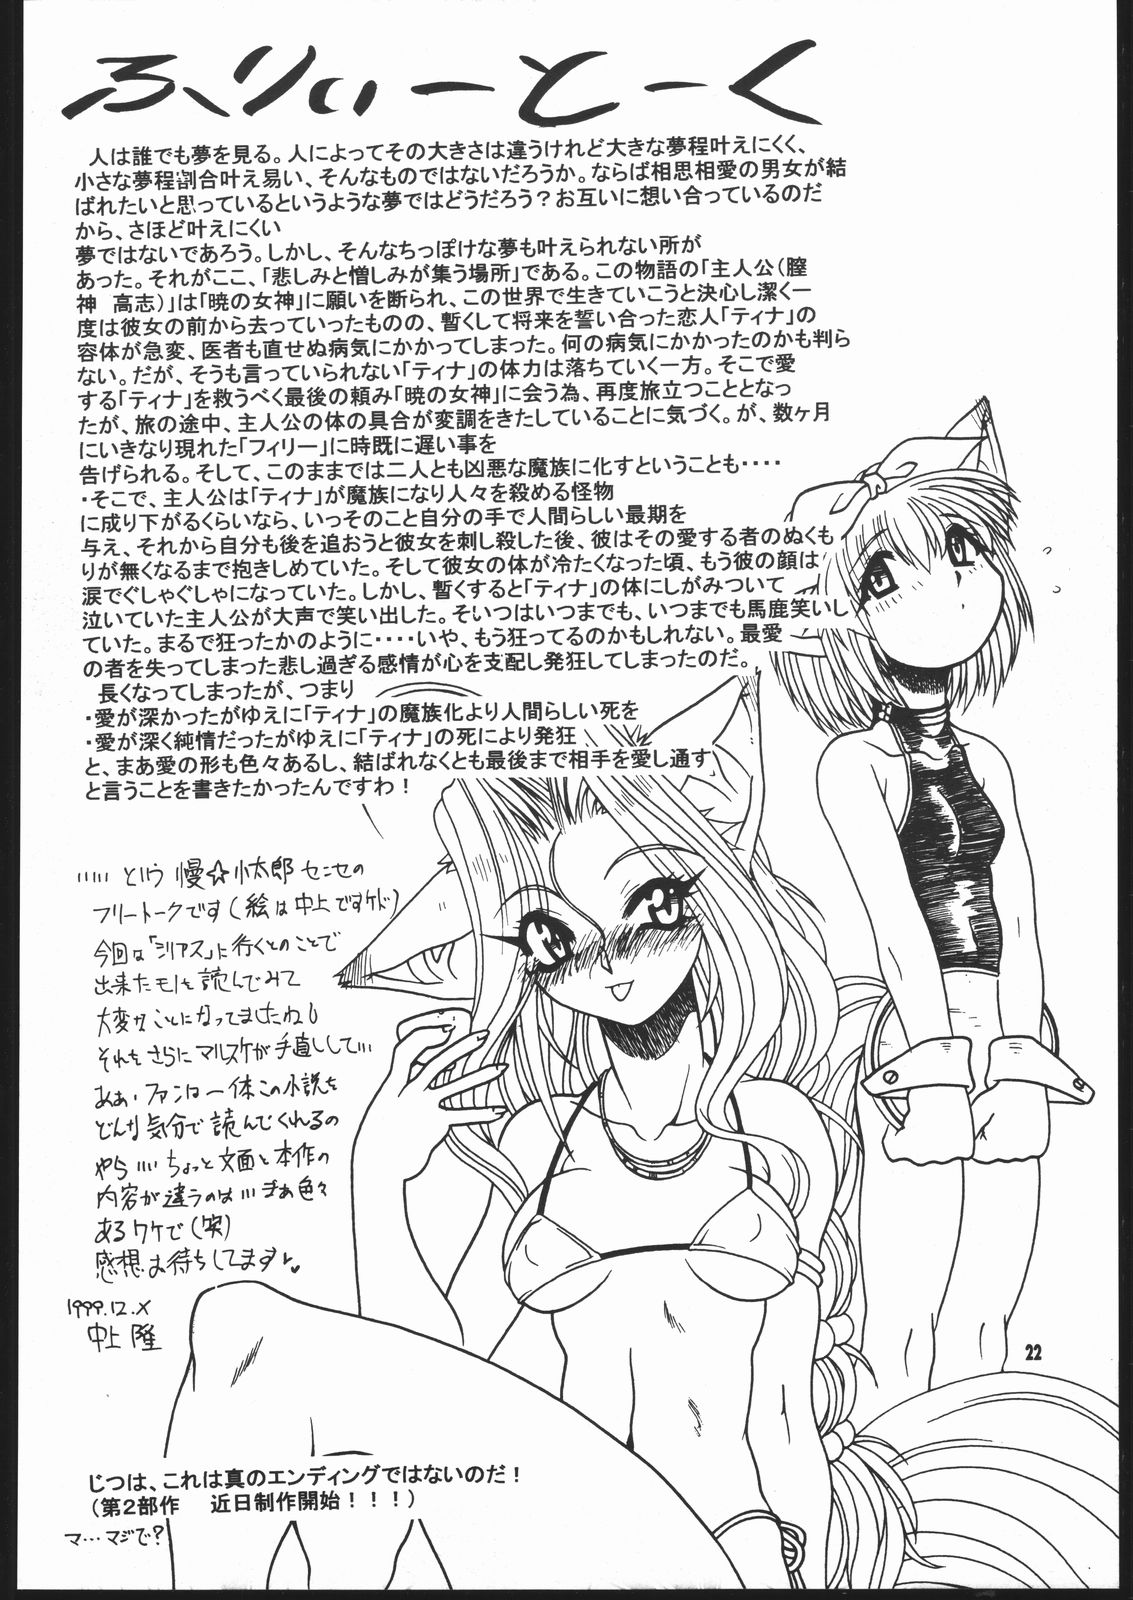 ふりぃーとーく
人は誰でも夢を見る。人によってその大きさは違うけれど大きな夢程叶えにくく、
小さな夢程割合叶え易い、そんなものではないだろうか。ならば相思相愛の男女が結
ばれたいと思っているというような夢ではどうだろう？お互いに想い合っているのだ
から、さほど叶えにくい
夢ではないであろう。しかし、そんなちっぽけな夢も叶えられない所が
あった。それがここ、「悲しみと憎しみが集う場所」である。この物語の「主人公（膣
神　高志）」は「暁の女神」に願いを断られ、この世界で生きていこうと決心し潔く一
度は彼女の前から去っていったものの、暫くして将来を誓い合った恋人「ティナ」の
容体が急変、医者も直せぬ病気にかかってしまった。何の病気にかかったのかも判ら
ない。だが、そうも言っていられない「ティナ」の体力は落ちていく一方。そこで愛
する「ティナ」を救うべく最後の頼み「暁の女神」に会う為、再度旅立つこととなっ
たが、旅の途中、主人公の体の具合が変調をきたしていることに気づく。が、数ヶ月
にいきなり現れた「フィリー」に時既に遅い事を
告げられる。そして、このままでは二人とも凶悪な魔族に化すということも・・・・
・そこで、主人公は「ティナ」が魔族になり人々を殺める怪物
に成り下がるくらいなら、いっそのこと自分の手で人間らしい最期を
与え、それから自分も後を追おうと彼女を刺し殺した後、彼はその愛する者のぬくも
りが無くなるまで抱きしめていた。そして彼女の体が冷たくなった頃、もう彼の顔は
涙でぐしゃぐしゃになっていた。しかし、暫くすると「ティナ」の体にしがみついて
泣いていた主人公が大声で笑い出した。そいつはいつまでも、いつまでも馬鹿笑いし
ていた。まるで狂ったかのように・・・・いや、もう狂ってるのかもしれない。最愛
の者を失ってしまった悲し過ぎる感情が心を支配し発狂してしまったのだ。
長くなってしまったが、つまり
・愛が深かったがゆえに「ティナ」の魔族化より人間らしい死を
・愛が深く純情だったがゆえに「ティナ」の死により発狂
と、まあ愛の形も色々あるし、結ばれなくとも最後まで相手を愛し通す
と言うことを書きたかったんですわ！
……という 慢☆小太郎 センセの
フリートークです（絵は中上ですケド）
今回は「シリアス」に行くとのことで
出来たモノを読んでみて
大変なことになってましたねし
それをさらにマルスケが手直しして…
あぁ、ファンは一体この小説を
どんな気分で読んでくれるの
やら……ちょっと文面と本作の
内容が違うのは…まぁ色々
あるワケで（笑）
感想お待ちしてます♥
1999.12.X
中上 隆
22
じつは、これは真のエンディングではないのだ！
（第２部作　近日制作開始！！！）
マ…マジで？